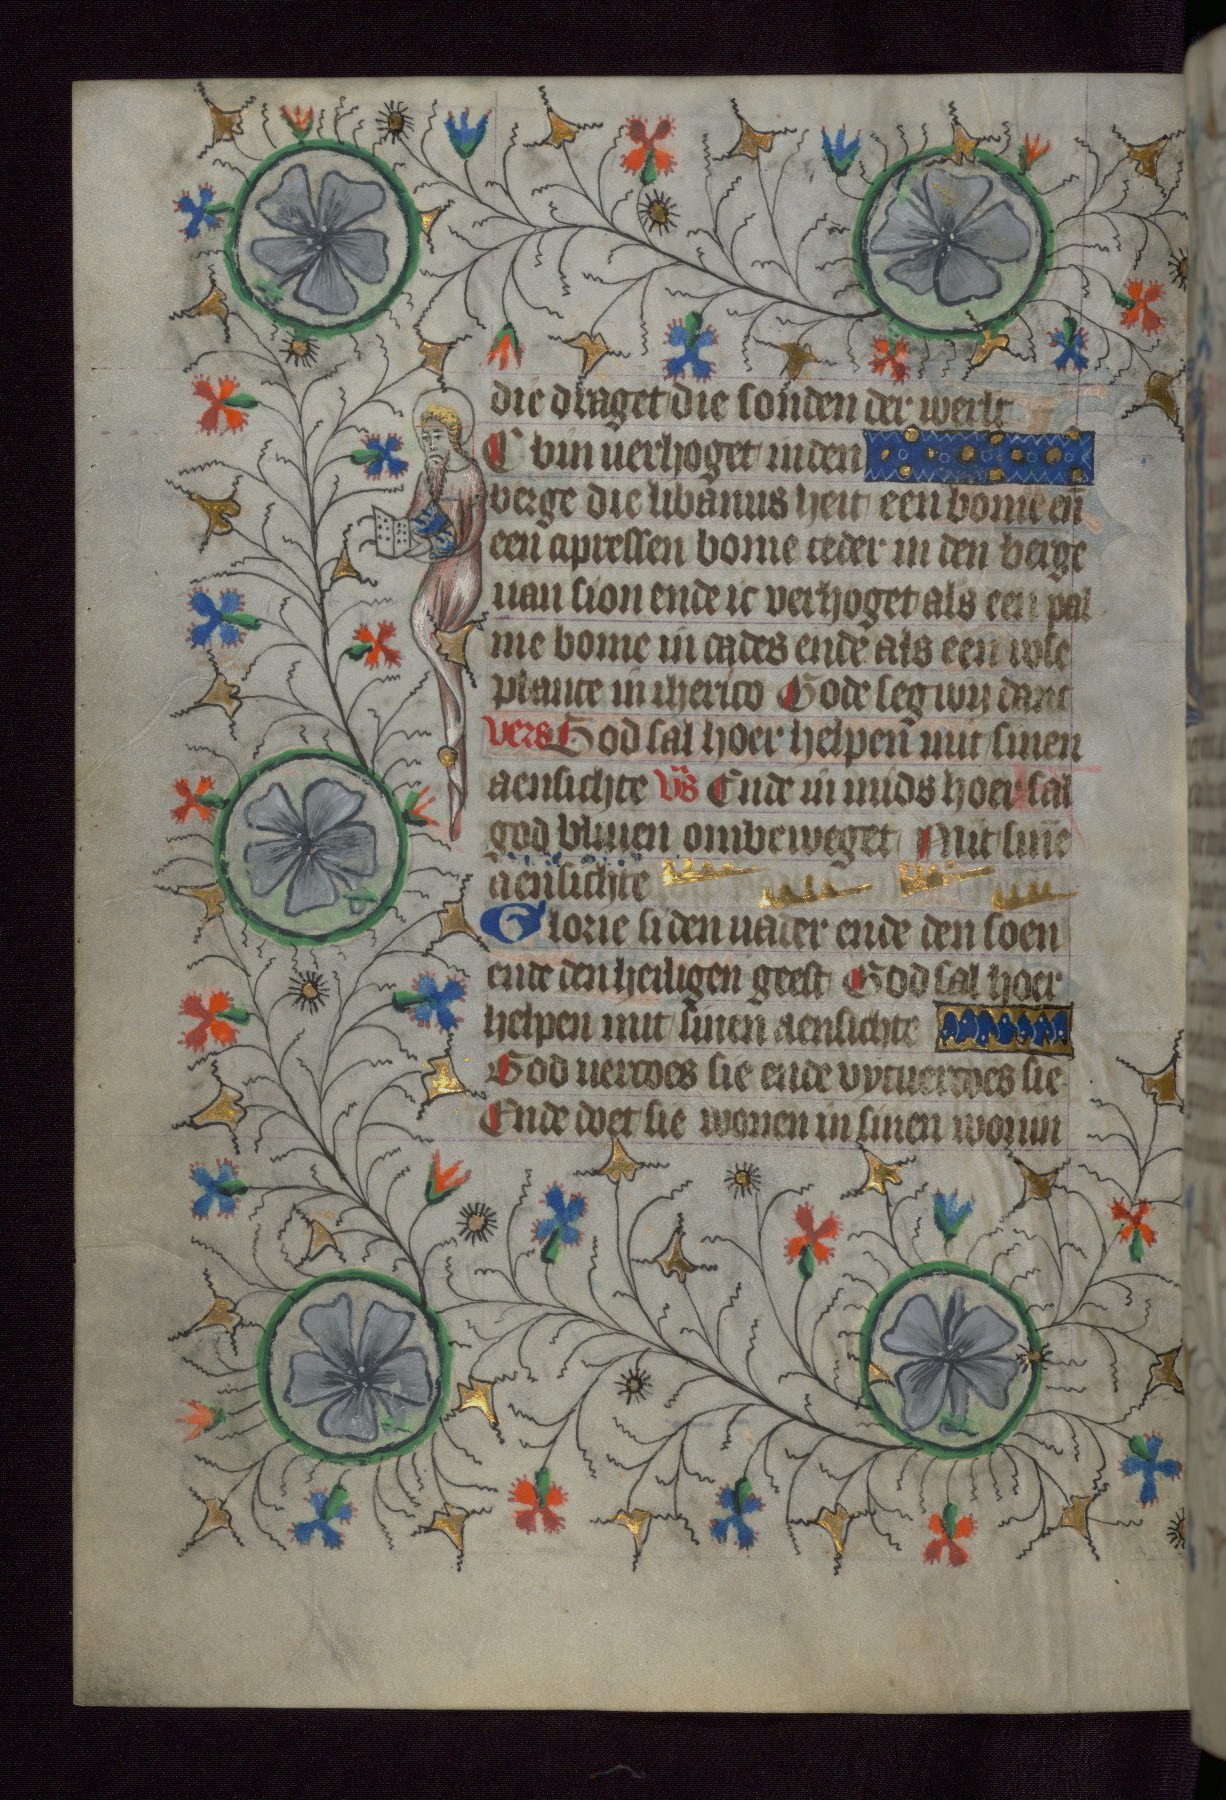 die draget die sonden der werlt
C bin uerhoget in den
berge die libanus heit een bome en̄
een apressen bome ceder in den berge
uan sion ende ic verhoget als een pal
me bome in cades ende als een rose
plante in iherico Gode seg wij danc
vers God sal hoer helpen̄ mit sinen
aensichte v̄s Ende in mids hoer sal
god bliuen ombeweget Mit sine
aensichte
Glorie si den uader ende den soen
ende den heiligen geest God sal hoer
helpen mit sinen aensichte
God uercoes sie ende vytuercoes sie
Ende doet sie wonen in sinen wonin